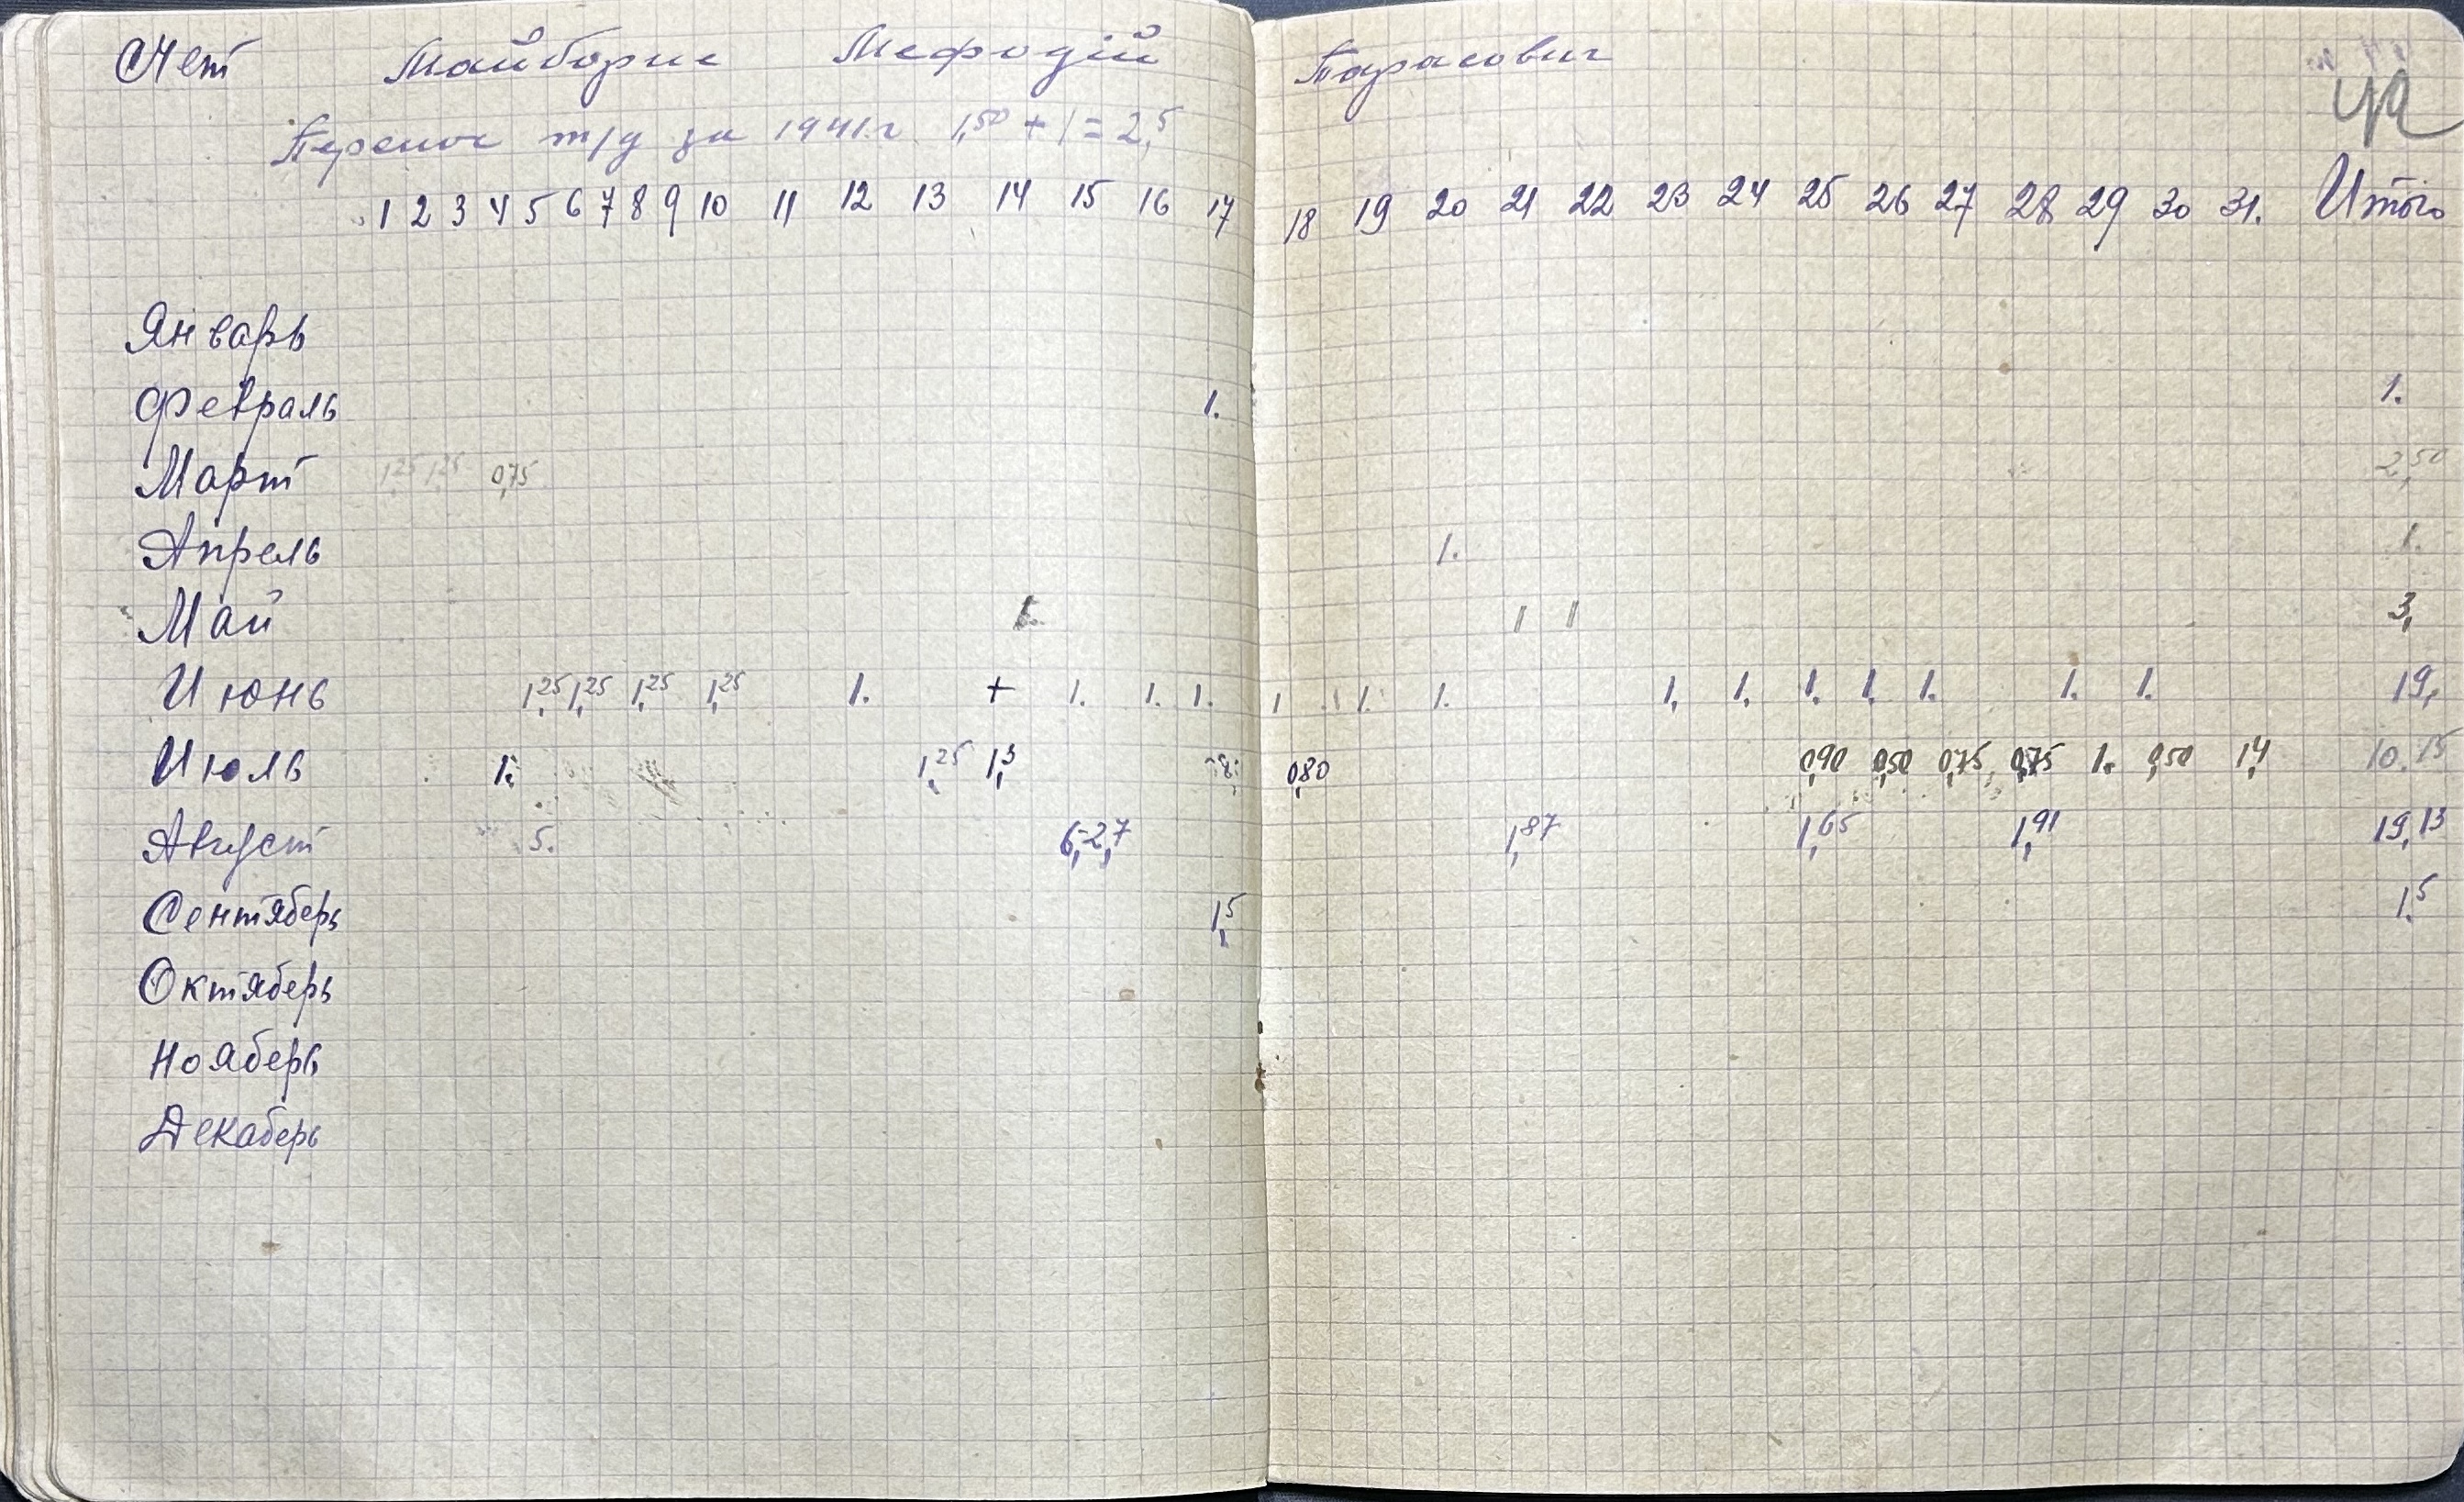 Счет Майборис Мефодій Тарасович
Перенос т/д за 1941 г 1,50 + 1 = 2,5
1 2 3 4 5 6 7 8 9 10 11 12 13 14 15 16 17 18 19 20 21 22 23 24 25 26 27 28 29 30 31. Итого
Январь
Февраль 1. 1.
Март 1,25 1,25 0,75 2,50
Апрель 1. 1.
Май 1. 1 1 3,
Июнь 1,25 1,25 1,25 1,25 1. + 1. 1. 1. 1 1. 1. 1, 1. 1. 1. 1. 1. 1. 19,
Июль 1. 1,25 1,3 0,80 0,90 0,50 0,75 0,75 1. 0,50 1,4 10.15
Август 5. 6,-2,7 1,87 1,65 1,91 19,13
Сентяберь 1,5 1.5
Октяберь
Нояберь
Декаберь